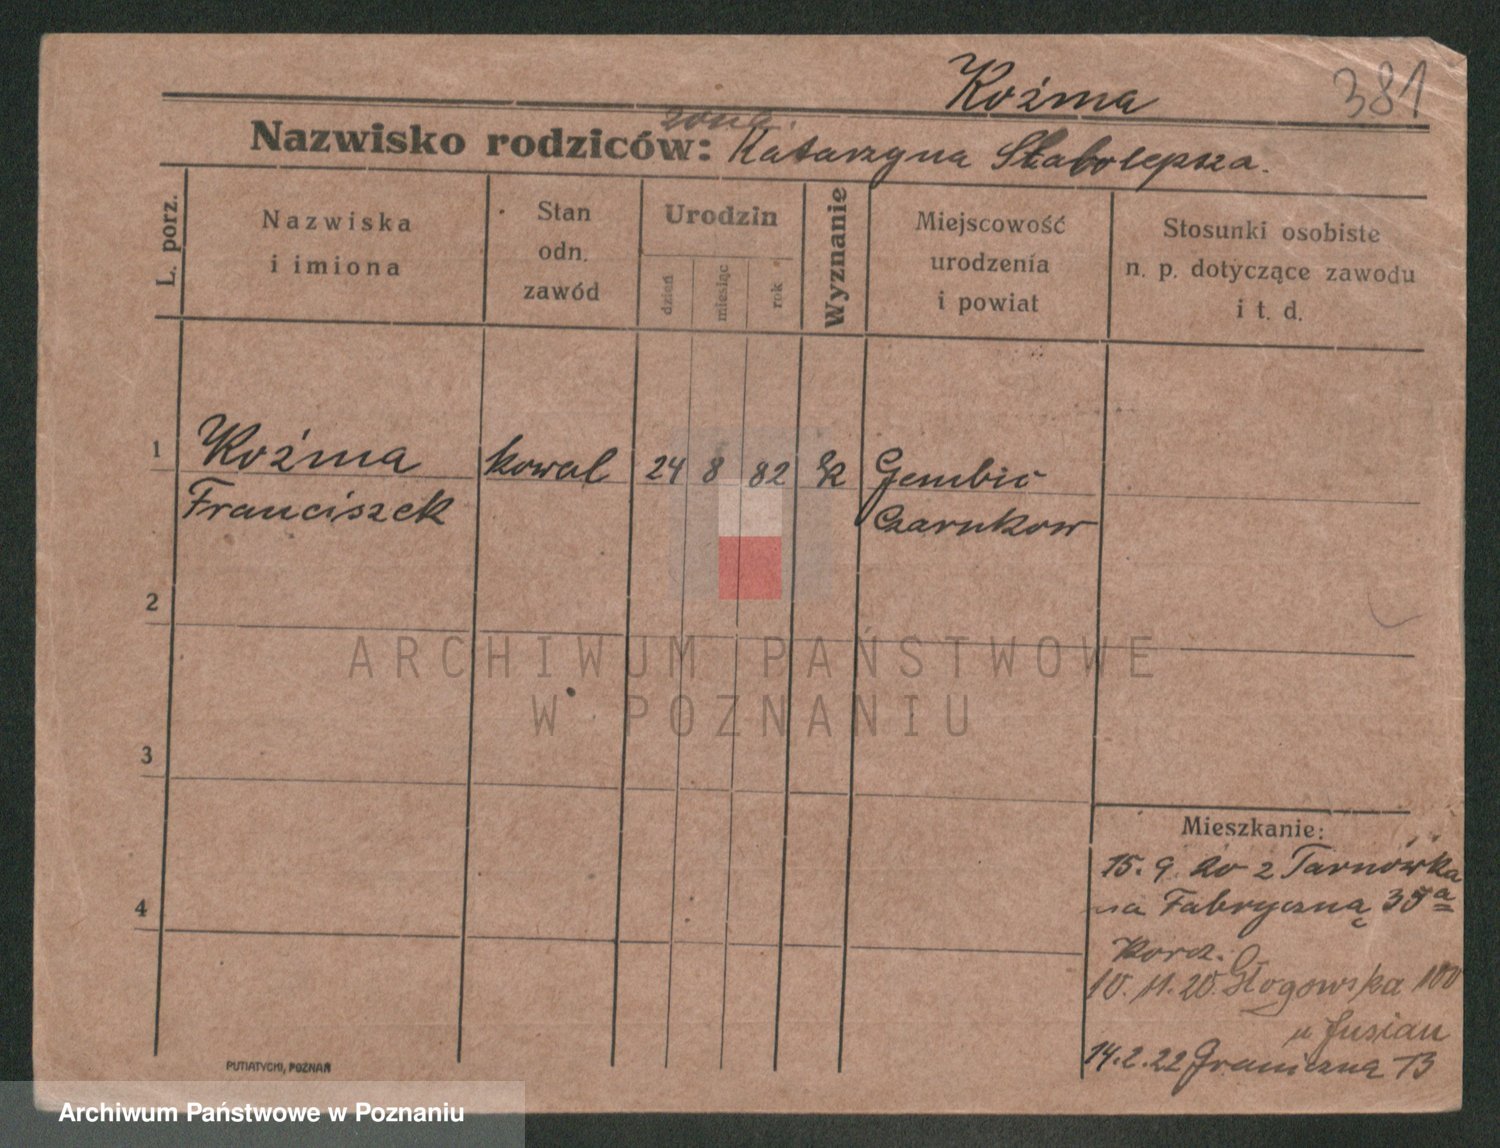 Koźma 381
żona.
Nazwisko rodziców: Katarzyna Słabolepsza.
L. porz.
Nazwiska
i imiona
Stan
odn.
zawód
Urodzin
dzień
miesiąc
rok
Wyznanie
Miejscowość
urodzenia
i powiat
Stosunki osobiste
n. p. dotyczące zawodu
i t. d.
1 Koźma kowal 24 8 82 Gembic
Franciszek Czarnkow
2
ARCHIWUM PAŃSTWOWE
W POZNANIU
3
Mieszkanie:
15. 9. 20 z Tarnówka
na Fabryczną 35a
10. 11. 20. Głogowska 100
14. 2. 22 Graniczna 13
4
PUTIATYCKI, POZNAŃ
Archiwum Państwowe w Poznaniu